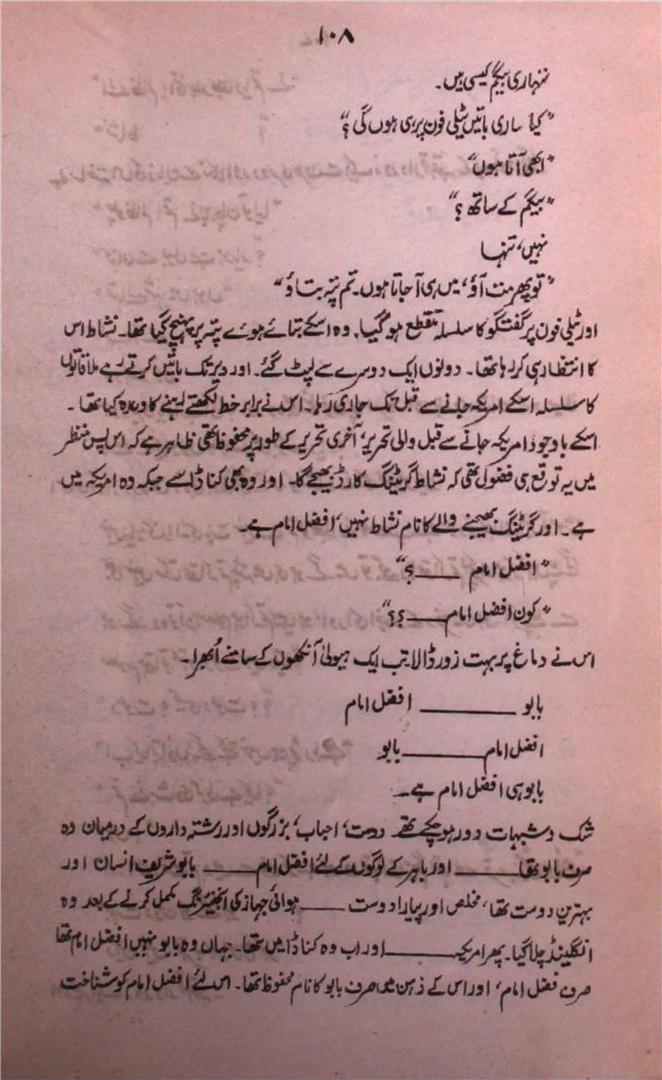 ۱۰۸
تمہاری بیگم کیسی ہیں۔
"کیا ساری باتیں ٹیلی فون پر ہی ہوں گی؟"
"ابھی آتا ہوں"
"بیگم کے ساتھ؟"
نہیں، تنہا
"تو پھر مت آؤ، میں ہی آ جاتا ہوں۔ تم پتہ بتاؤ"
اور ٹیلی فون پر گفتگو کا سلسلہ منقطع ہو گیا۔ وہ اسکے بتائے ہوئے پتہ پر پہنچ گیا تھا۔ نشاط اس
کا انتظار ہی کر رہا تھا۔ دونوں ایک دوسرے سے لپٹ گئے۔ اور دیر تک باتیں کرتے رہے ملاقاتوں
کا سلسلہ اسکے امریکہ جانے سے قبل تک جاری رہا۔ اس نے برابر خط لکھتے رہنے کا وعدہ کیا تھا۔
اسکے باوجود امریکہ جانے سے قبل والی تحریر، آخری تحریر کے طور پر محفوظ تھی ظاہر ہے کہ اس پس منظر
میں یہ توقع ہی فضول تھی کہ نشاط گریٹنگ کارڈ بھیجے گا۔ اور وہ بھی کناڈا سے جبکہ وہ امریکہ میں
ہے۔ اور گریٹنگ بھیجنے والے کا نام نشاط نہیں، افضل امام ہے۔
"افضل امام ——؟"
"کون افضل امام ——؟؟"
اس نے دماغ پر بہت زور ڈالا تب ایک ہیولیٰ آنکھوں کے سامنے اُبھرا۔
بابو ———— افضل امام
افضل امام ———— بابو
بابو ہی افضل امام ہے۔
شک و شبہات دور ہو چکے تھے۔ دوست، احباب، بزرگوں اور رشتہ داروں کے درمیان وہ
صرف بابو تھا ——— اور باہر کے لوگوں کے لئے افضل امام ——— بابو شریف انسان اور
بہترین دوست تھا، مخلص اور پیارا دوست ——— ہوائی جہاز کی انجینئرنگ مکمل کرنے کے بعد وہ
انگلینڈ چلا گیا۔ پھر امریکہ ——— اور اب وہ کناڈا میں تھا۔ جہاں وہ بابو نہیں افضل امام تھا
صرف افضل امام، اور اس کے ذہن میں صرف بابو کا نام محفوظ تھا۔ اس لئے افضل امام کو شناخت